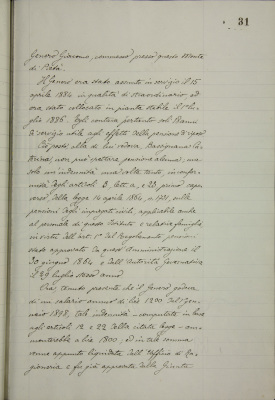 31
Genero Giacomo, commesso presso questo Monte
di Pietà.
Il Genero era stato assunto in servizio il 15
aprile 1884 in qualità di straordinario, ed
era stato collocato in pianta stabile il 1° lu-
glio 1886. Egli contava pertanto soli anni
di servizio utile agli effetti della pensione di riposo.
Ciò posto alla di lui vedova,
non può spettare pensione alcuna, ma
solo un'indennità una volta tanto, in confor-
mità degli articoli 3, lett. a, e 23 primo capo-
verso della legge 14 aprile 1864, n. 1731, sulle
pensioni degli impiegati civili, applicabile anche
al personale di questo Istituto
in virtù dell'art. 1° del Regolamento
stato approvato da questa Amministrazione il
30 giugno 1864 e dall'Autorità Governativa
il 29 luglio stesso anno.
Ora, tenuto presente che il Genero godeva
di un salario annuo di lire 1200 dal 1° gen-
naio 1898, tale indennità - computata in base
agli articoli 12 e 22 della citata legge - am-
monterebbe a lire 1800, ed in tale somma
venne appunto liquidata dall'Ufficio di Ra-
gioneria e fu già approvata dalla Giunta